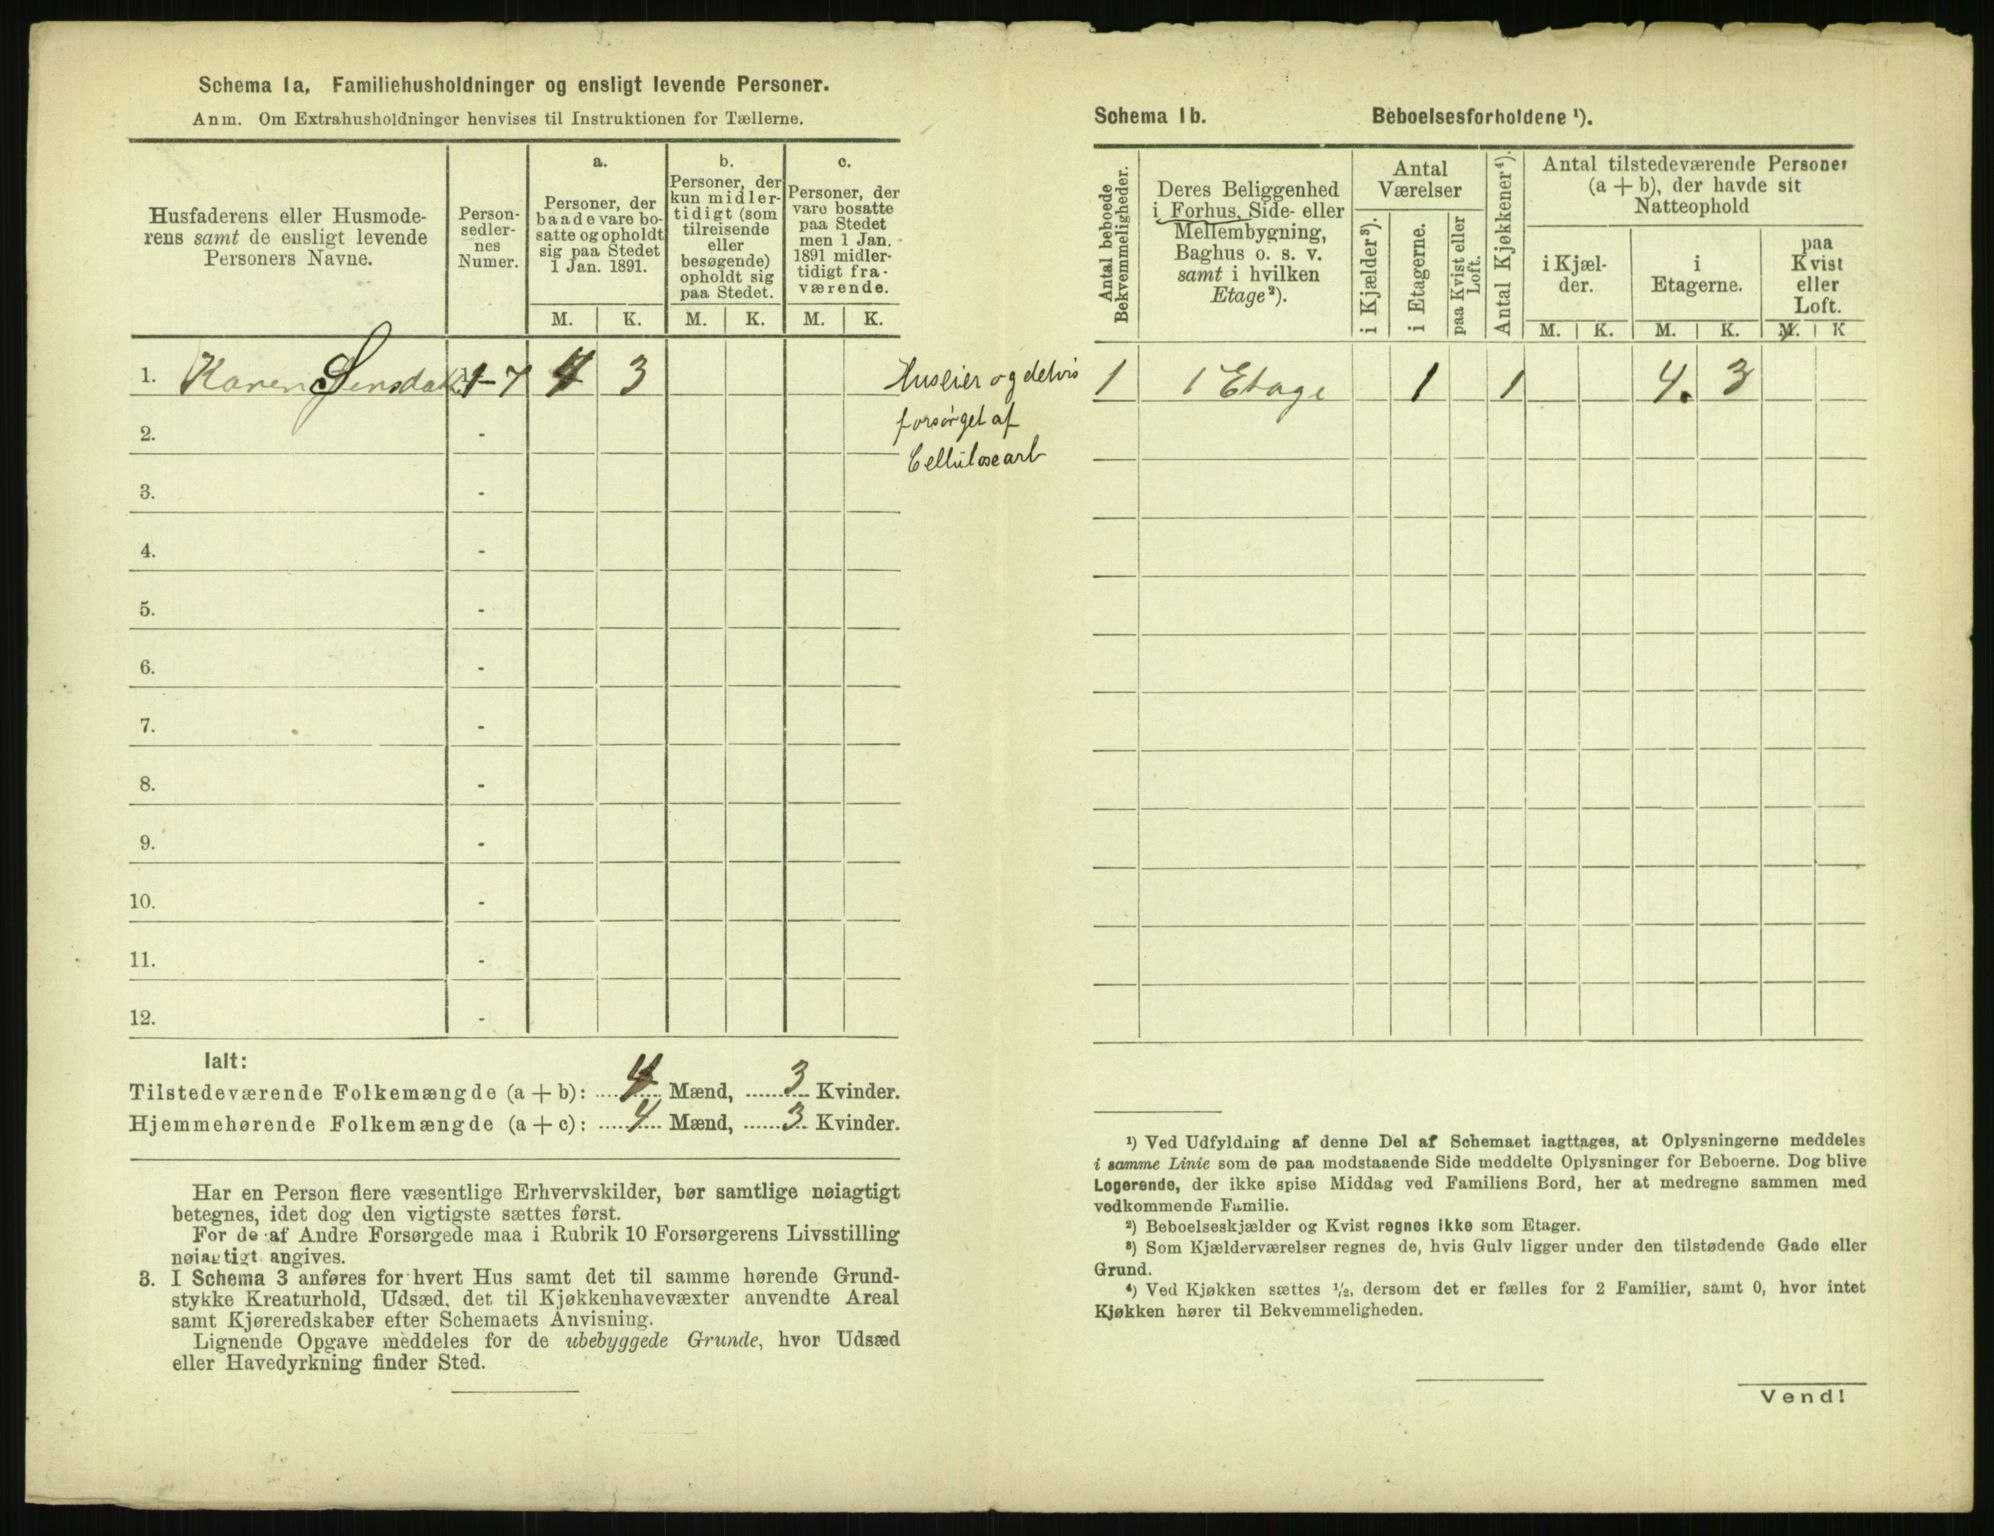 Schema 1a, Familiehusholdninger og ensligt levende Personer.
Anm. Om Extrahusholdninger henvises til Instruktionen for Tællerne.
Husfaderens eller Husmode-
rens samt de ensligt levende
Personers Navne.
Person-
sedler-
nes
Numer.
a.
Personer, der
baade vare bo-
satte og opholdt
sig paa Stedet
1 Jan. 1891.
b.
Personer, der
kun midler-
tidigt (som
tilreisende
eller
besøgende)
opholdt sig
paa Stedet.
c.
Personer, der
vare bosatte
paa Stedet
men 1 Jan.
1891 midler-
tidigt fra-
værende.
M. K. M. K. M. K.
1. Karen 1-7 4 3
Huseier og delvis
forsørget af
Cellulosearb
2. -
3. -
4. -
5. -
6. -
7. -
8. -
9. -
10. -
11. -
12. -
Ialt:
Tilstedeværende Folkemængde (a + b): 4 Mænd, 3 Kvinder.
Hjemmehørende Folkemængde (a + c): 4 Mænd, 3 Kvinder.
Har en Person flere væsentlige Erhvervskilder, bør samtlige nøiagtigt
betegnes, idet dog den vigtigste sættes først.
For de af Andre Forsørgede maa i Rubrik 10 Forsørgerens Livsstilling
nøiagtigt angives.
3. I Schema 3 anføres for hvert Hus samt det til samme hørende Grund-
stykke Kreaturhold, Udsæd, det til Kjøkkenhavevæxter anvendte Areal
samt Kjøreredskaber efter Schemaets Anvisning.
Lignende Opgave meddeles for de ubebyggede Grunde, hvor Udsæd
eller Havedyrkning finder Sted.
Schema 1b. Beboelsesforholdene ¹).
Antal beboede
Bekvemmeligheder.
Deres Beliggenhed
i Forhus, Side- eller
Mellembygning,
Baghus o. s. v.
samt i hvilken
Etage²).
Antal
Værelser
i Kjælder³).
i Etagerne.
paa Kvist eller
Loft.
Antal Kjøkkener⁴).
Antal tilstedeværende Personer
(a + b), der havde sit
Natteophold
i Kjæl-
der.
i
Etagerne.
paa
Kvist
eller
Loft.
M. K. M. K. M. K
1 1 Etage 1 1 4. 3
¹) Ved Udfyldning af denne Del af Schemaet iagttages, at Oplysningerne meddeles
i samme Linie som de paa modstaaende Side meddelte Oplysninger for Beboerne. Dog blive
Logerende, der ikke spise Middag ved Familiens Bord, her at medregne sammen med
vedkommende Familie.
²) Beboelseskjælder og Kvist regnes ikke som Etager.
³) Som Kjælderværelser regnes de, hvis Gulv ligger under den tilstødende Gade eller
Grund.
⁴) Ved Kjøkken sættes ½, dersom det er fælles for 2 Familier, samt 0, hvor intet
Kjøkken hører til Bekvemmeligheden.
Vend!